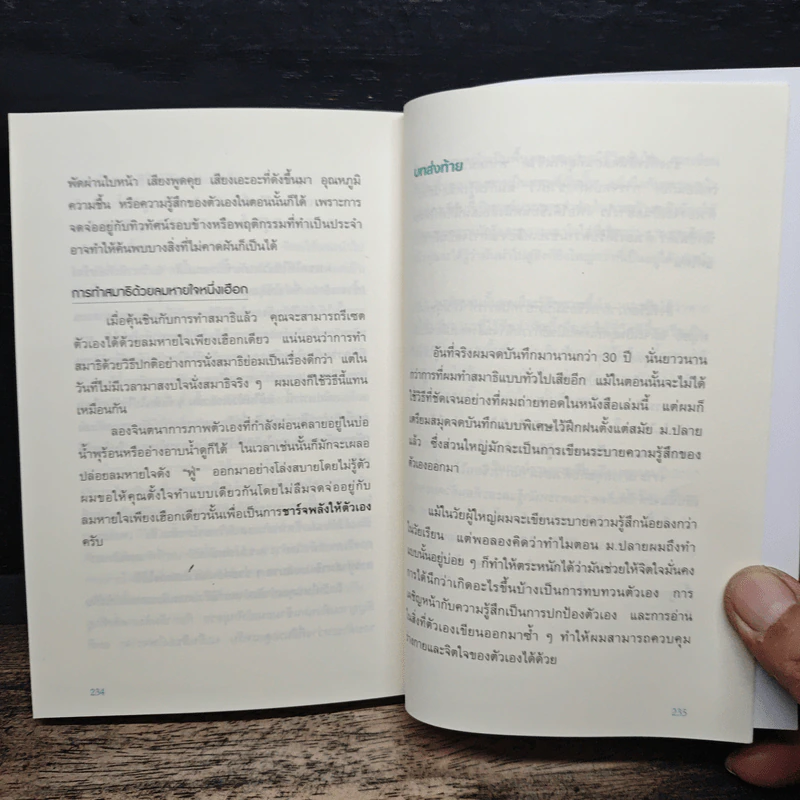 พัดผ่านใบหน้า เสียงพูดคุย เสียงเอะอะที่ดังขึ้นมา อุณหภูมิ
ความชื้น หรือความรู้สึกของตัวเองในตอนนั้นก็ได้ เพราะการ
จดจ่ออยู่กับทิวทัศน์รอบข้างหรือพฤติกรรมที่ทำเป็นประจำ
อาจทำให้ค้นพบบางสิ่งที่ไม่คาดฝันก็เป็นได้
การทำสมาธิด้วยลมหายใจหนึ่งเฮือก
เมื่อคุ้นชินกับการทำสมาธิแล้ว คุณจะสามารถรีเซต
ตัวเองได้ด้วยลมหายใจเพียงเฮือกเดียว แน่นอนว่าการทำ
สมาธิด้วยวิธีปกติอย่างการนั่งสมาธิย่อมเป็นเรื่องดีกว่า แต่ใน
วันที่ไม่มีเวลามาสงบใจนั่งสมาธิจริง ๆ ผมเองก็ใช้วิธีนี้แทน
เหมือนกัน
ลองจินตนาการภาพตัวเองที่กำลังผ่อนคลายอยู่ในบ่อ
น้ำพุร้อนหรืออ่างอาบน้ำดูก็ได้ ในเวลาเช่นนั้นก็มักจะเผลอ
ปล่อยลมหายใจดัง "ฟู่" ออกมาอย่างโล่งสบายโดยไม่รู้ตัว
ผมขอให้คุณตั้งใจทำแบบเดียวกันโดยไม่ลืมจดจ่ออยู่กับ
ลมหายใจเพียงเฮือกเดียวนั้นเพื่อเป็นการชาร์จพลังให้ตัวเอง
ครับ
234
บทส่งท้าย
อันที่จริงผมจดบันทึกมานานกว่า 30 ปี นั่นยาวนาน
กว่าการที่ผมทำสมาธิแบบทั่วไปเสียอีก แม้ในตอนนั้นจะไม่ได้
ใช้วิธีที่ชัดเจนอย่างที่ผมถ่ายทอดในหนังสือเล่มนี้ แต่ผมก็
เตรียมสมุดจดบันทึกแบบพิเศษไว้ฝึกฝนตั้งแต่สมัย ม.ปลาย
แล้ว ซึ่งส่วนใหญ่มักจะเป็นการเขียนระบายความรู้สึกของ
ตัวเองออกมา
แม้ในวัยผู้ใหญ่ผมจะเขียนระบายความรู้สึกน้อยลงกว่า
ในวัยเรียน แต่พอลองคิดว่าทำไมตอน ม.ปลายผมถึงทำ
แบบนั้นอยู่บ่อย ๆ ก็ทำให้ตระหนักได้ว่ามันช่วยให้จิตใจมั่นคง
การได้นึกว่าเกิดอะไรขึ้นบ้างเป็นการทบทวนตัวเอง การ
เผชิญหน้ากับความรู้สึกเป็นการปกป้องตัวเอง และการอ่าน
ในสิ่งที่ตัวเองเขียนออกมาซ้ำ ๆ ทำให้ผมสามารถควบคุม
ร่างกายและจิตใจของตัวเองได้ด้วย
235